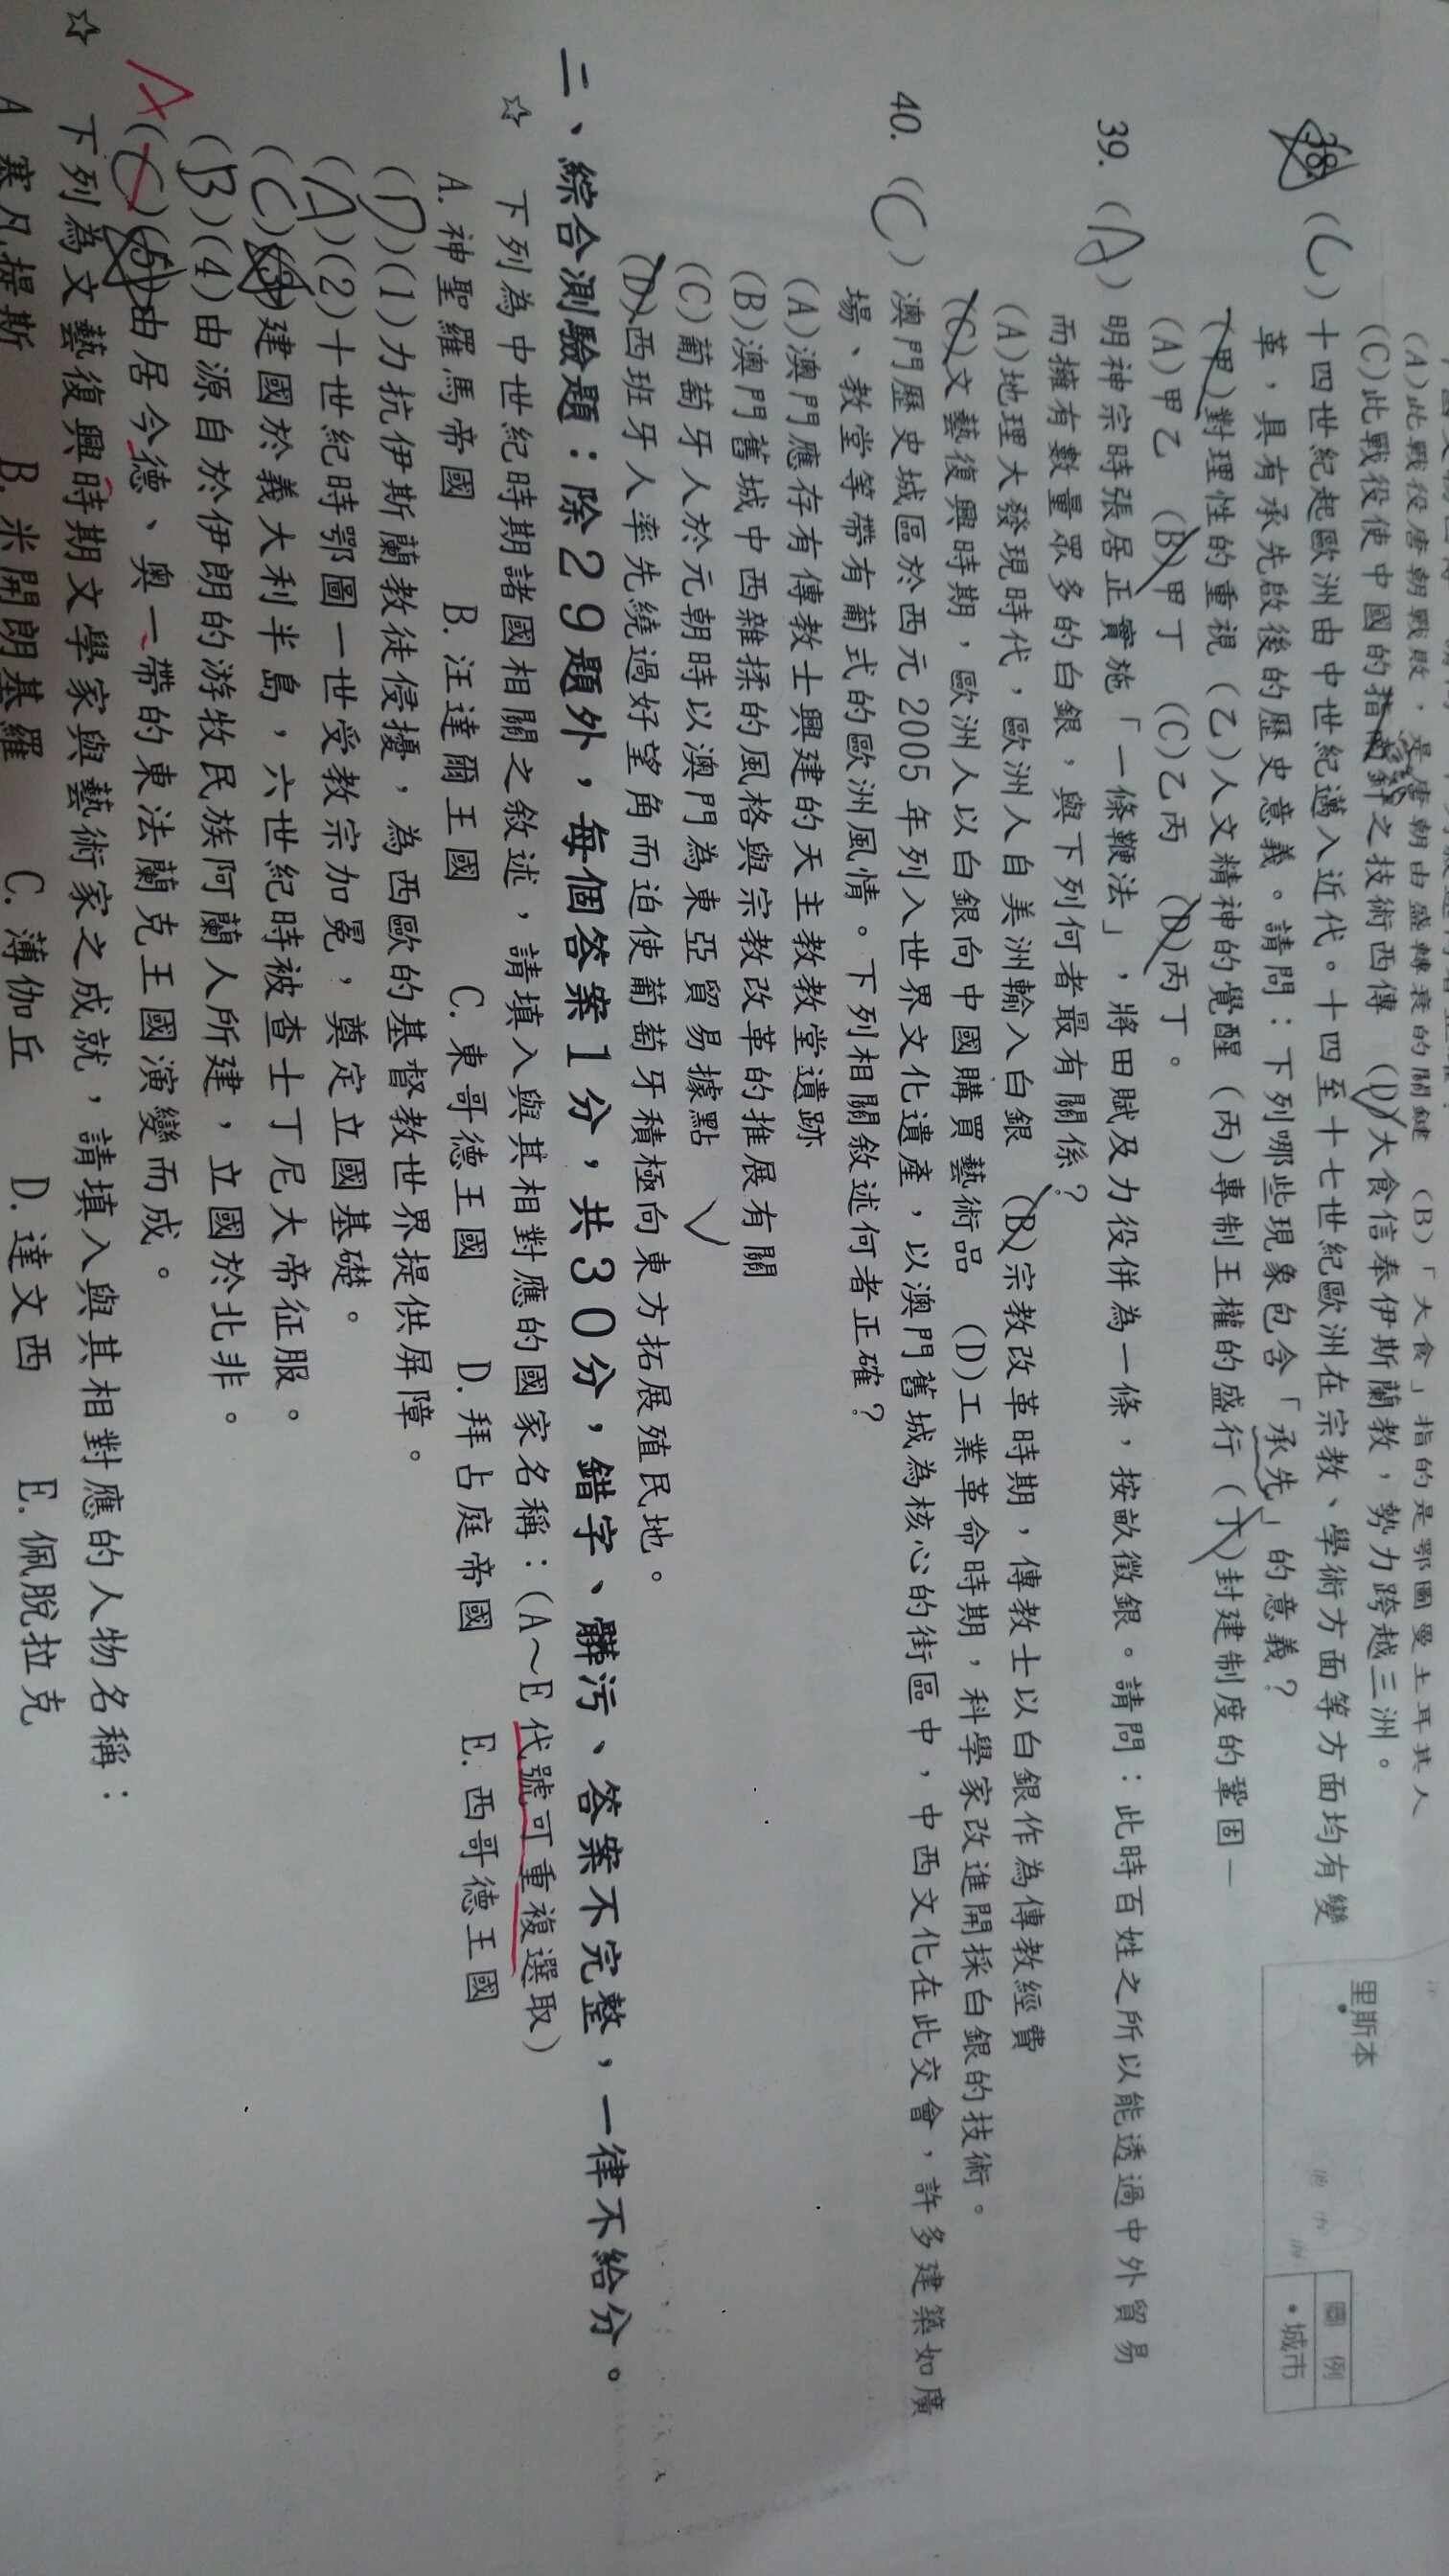 (A)此戰役唐朝戰敗，是唐朝由盛轉衰的關鍵 (B)「大食」指的是鄂圖曼土耳其人
(C)此戰役使中國的指南針之技術西傳 (D)大食信奉伊斯蘭教，勢力跨越三洲。
38. (C) 十四世紀起歐洲由中世紀邁入近代。十四至十七世紀歐洲在宗教、學術方面等方面均有變
革，具有承先啟後的歷史意義。請問：下列哪些現象包含「承先」的意義？
(甲)對理性的重視 (乙)人文精神的覺醒 (丙)專制王權的盛行 (丁)封建制度的鞏固—
(A)甲乙 (B)甲丁 (C)乙丙 (D)丙丁。
39. (A) 明神宗時張居正實施「一條鞭法」，將田賦及力役併為一條，按畝徵銀。請問：此時百姓之所以能透過中外貿易
而擁有數量眾多的白銀，與下列何者最有關係？
(A)地理大發現時代，歐洲人自美洲輸入白銀 (B)宗教改革時期，傳教士以白銀作為傳教經費
(C)文藝復興時期，歐洲人以白銀向中國購買藝術品 (D)工業革命時期，科學家改進開採白銀的技術。
40. (C) 澳門歷史城區於西元2005年列入世界文化遺產，以澳門舊城為核心的街區中，中西文化在此交會，許多建築如廣
場、教堂等帶有葡式的歐洲風情。下列相關敘述何者正確？
(A)澳門應存有傳教士興建的天主教教堂遺跡
(B)澳門舊城中西雜揉的風格與宗教改革的推展有關
(C)葡萄牙人於元朝時以澳門為東亞貿易據點
(D)西班牙人率先繞過好望角而迫使葡萄牙積極向東方拓展殖民地。
二、綜合測驗題：除29題外，每個答案1分，共30分，錯字、髒污、答案不完整，一律不給分。
☆ 下列為中世紀時期諸國相關之敘述，請填入與其相對應的國家名稱：(A～E代號可重複選取)
A.神聖羅馬帝國 B.汪達爾王國 C.東哥德王國 D.拜占庭帝國 E.西哥德王國
(D)(1)力抗伊斯蘭教徒侵擾，為西歐的基督教世界提供屏障。
(A)(2)十世紀時鄂圖一世受教宗加冕，奠定立國基礎。
(C)(3)建國於義大利半島，六世紀時被查士丁尼大帝征服。
(B)(4)由源自於伊朗的游牧民族阿蘭人所建，立國於北非。
A (C)(5)由居今德、奧一帶的東法蘭克王國演變而成。
☆ 下列為文藝復興時期文學家與藝術家之成就，請填入與其相對應的人物名稱：
A 塞凡提斯 B.米開朗基羅 C.薄伽丘 D.達文西 E.佩脫拉克
里斯本
圖例
•城市